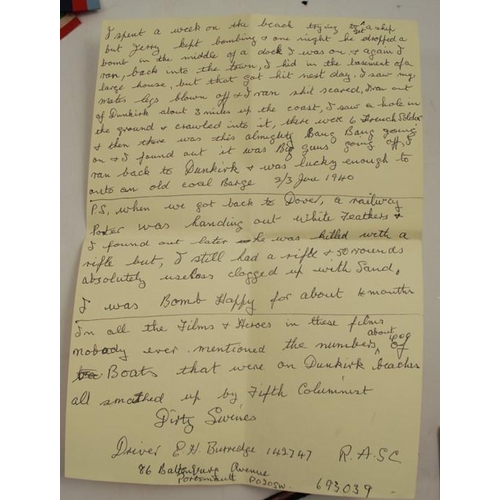 I spent a week on the beach trying to get a ship
but Jerry kept bombing & one night he dropped a
bomb in the middle of a dock I was on & again I
ran, back into the town, I hid in the basement of a
large house, but that got hit next day. I saw my
mates legs blown off & I ran shit scared, I ran out
of Dunkirk about 3 miles up the coast, I saw a hole in
the ground & crawled into it, there were 6 French Soldiers
& then there was this almighty Bang Bang going
on & I found out it was Big guns going off, I
ran back to Dunkirk & was lucky enough to
onto an old coal Barge 2/3 June 1940
P.S. when we got back to Dover, a railway
Porter was handing out White Feathers &
I found out later he was killed with a
rifle but, I still had a rifle & 50 rounds
absolutely useless clogged up with Sand,
I was Bomb Happy for about 4 months
In all the Films & Heroes in these films
nobody ever mentioned the numbers, about
Boats that were on Dunkirk beaches
all smashed up by Fifth Columnist
Dirty Swines
Driver E H Burridge 142747 R.A.S.C.
86 Avenue
Portsmouth
693039